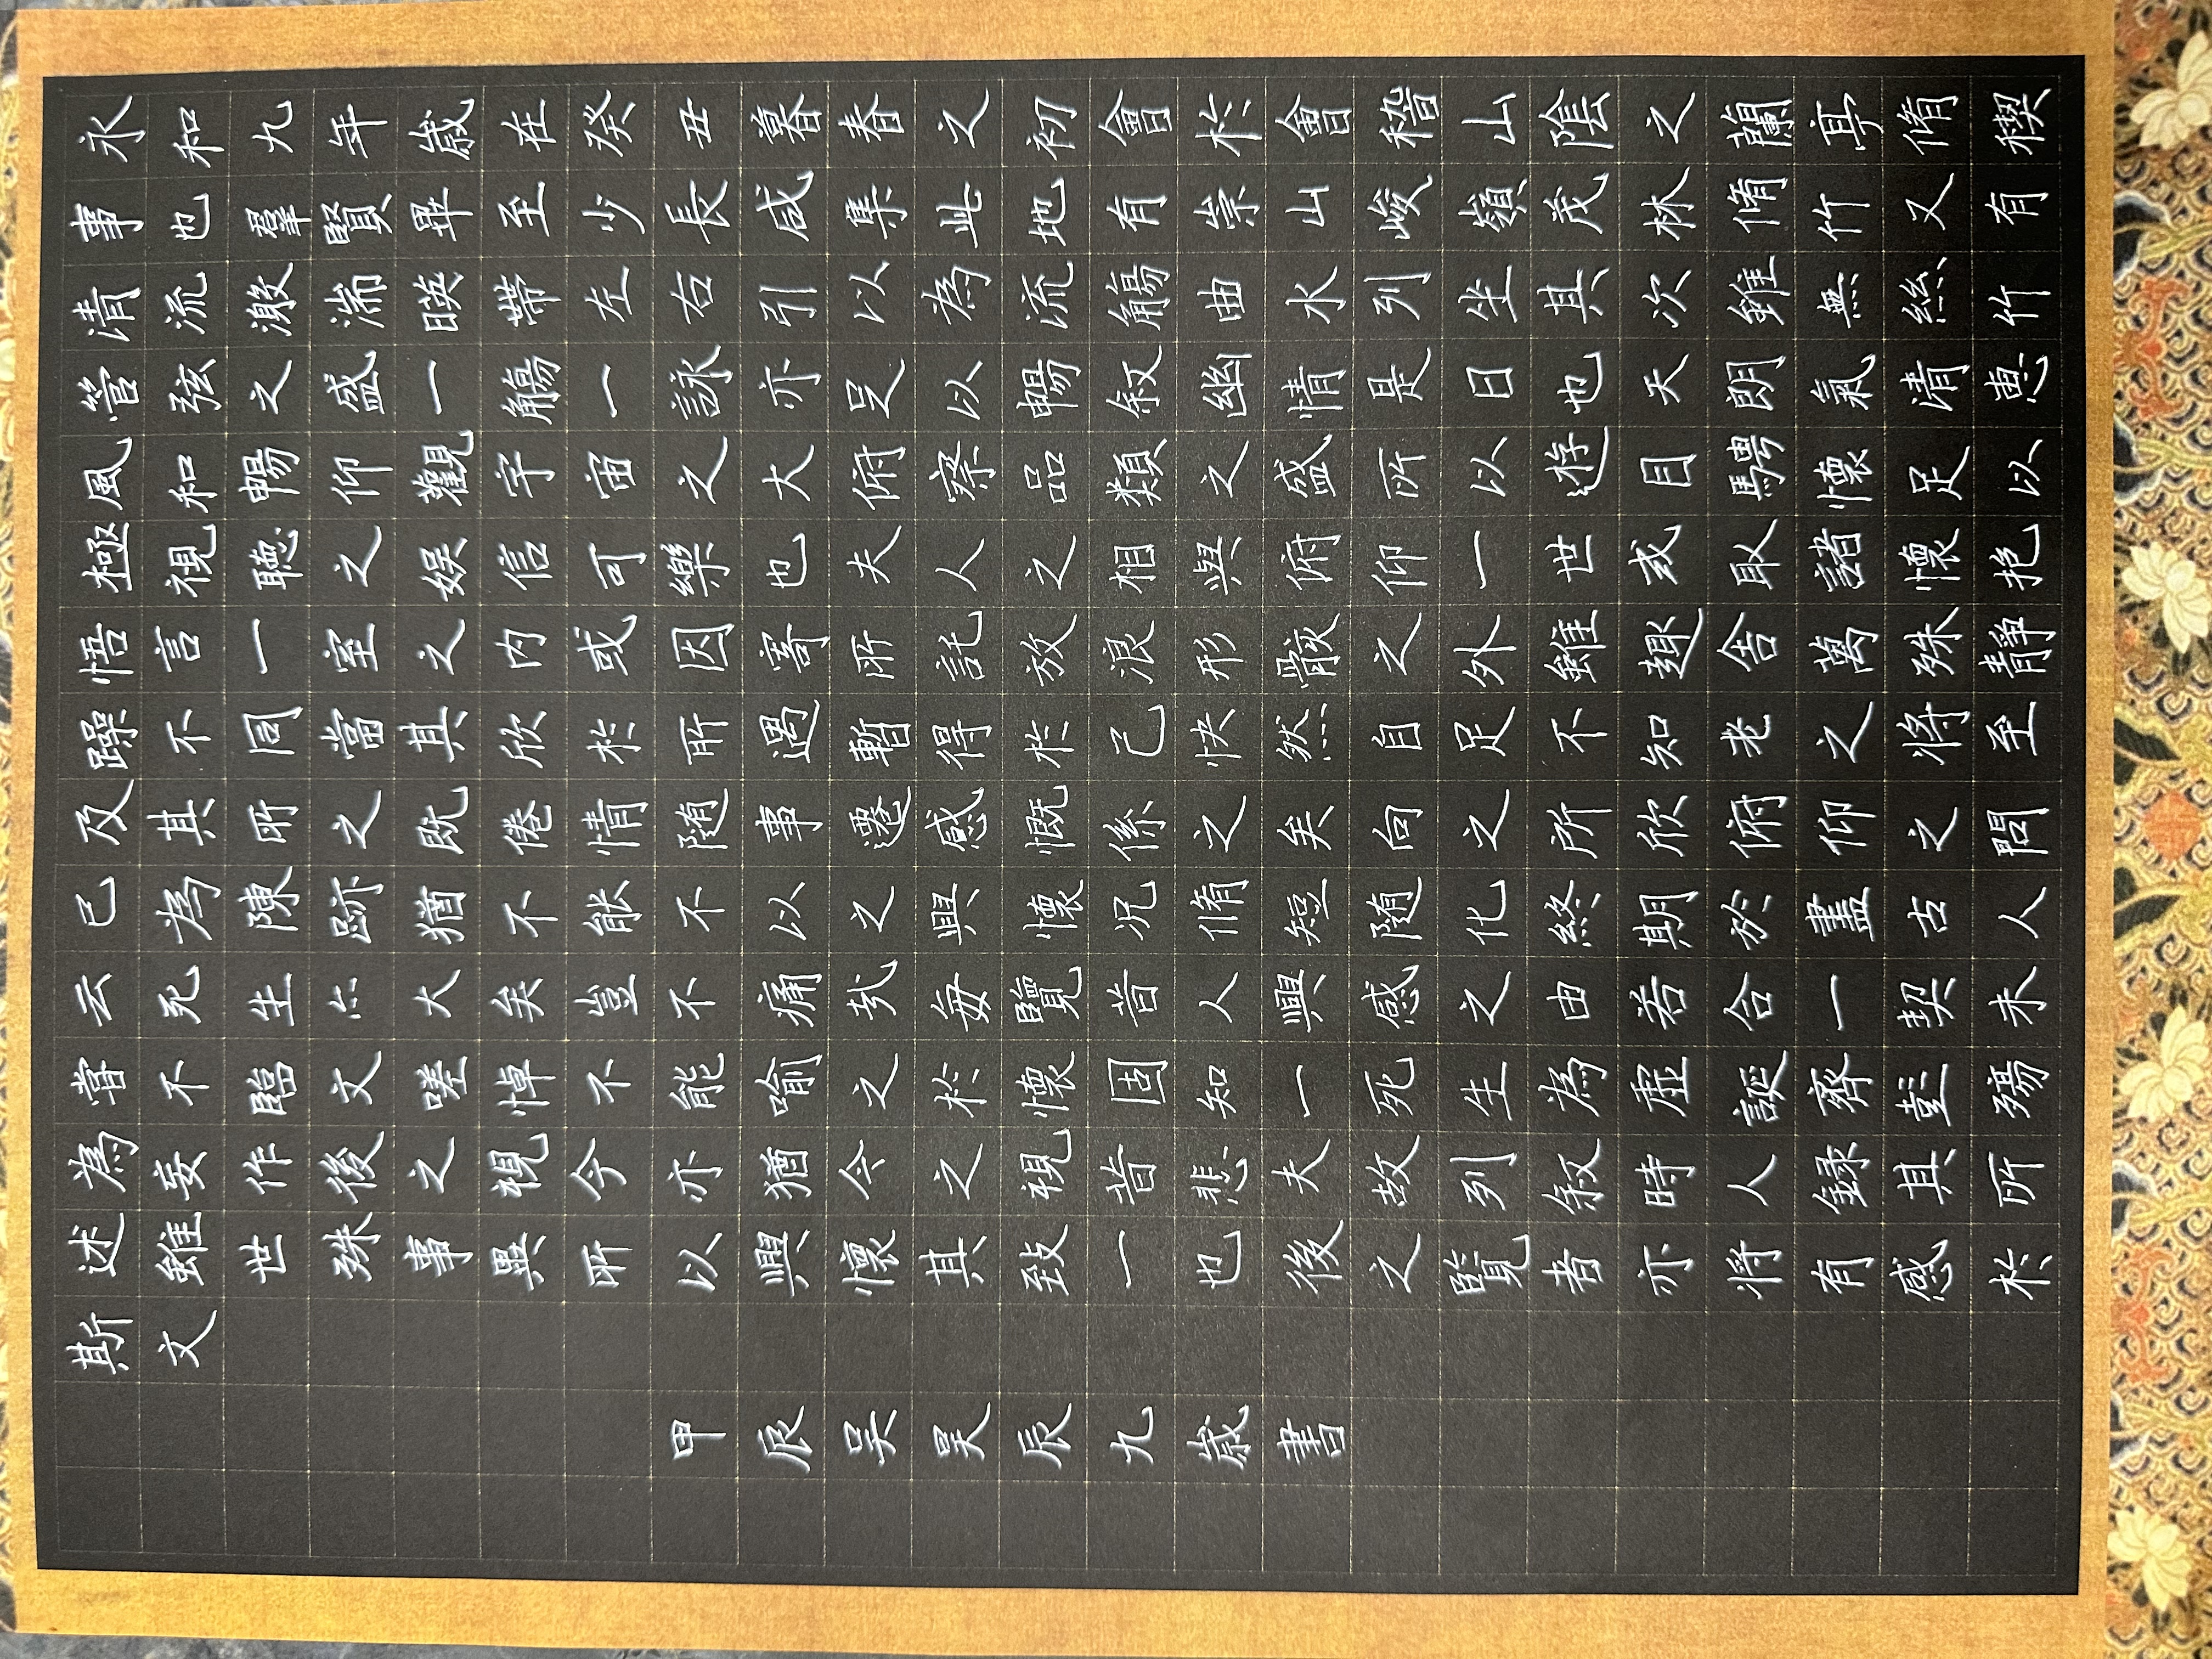 永和九年歲在癸丑暮春之初會於會稽山陰之蘭亭脩禊
事也羣賢畢至少長咸集此地有崇山峻嶺茂林脩竹又有
清流激湍暎帶左右引以為流觴曲水列坐其次雖無絲竹
管弦之盛一觴一詠亦足以暢叙幽情是日也天朗氣清恵
風和暢仰觀宇宙之大俯察品類之盛所以遊目騁懷足以
極視聽之娛信可樂也夫人之相與俯仰一世或取諸懷抱
悟言一室之内或因寄所託放浪形骸之外雖趣舍萬殊靜
躁不同當其欣於所遇暫得於己快然自足不知老之將至
及其所之既倦情随事遷感慨係之矣向之所欣俯仰之間
已為陳跡猶不能不以之興懷况脩短随化終期於盡古人
云死生亦大矣豈不痛哉每覽昔人興感之由若合一契未
嘗不臨文嗟悼不能喻之於懷固知一死生為虛誕齊彭殤
為妄作後之視今亦猶今之視昔悲夫故列叙時人録其所
述雖世殊事異所以興懷其致一也後之覽者亦將有感於
斯文
甲辰吴昊辰九歲書